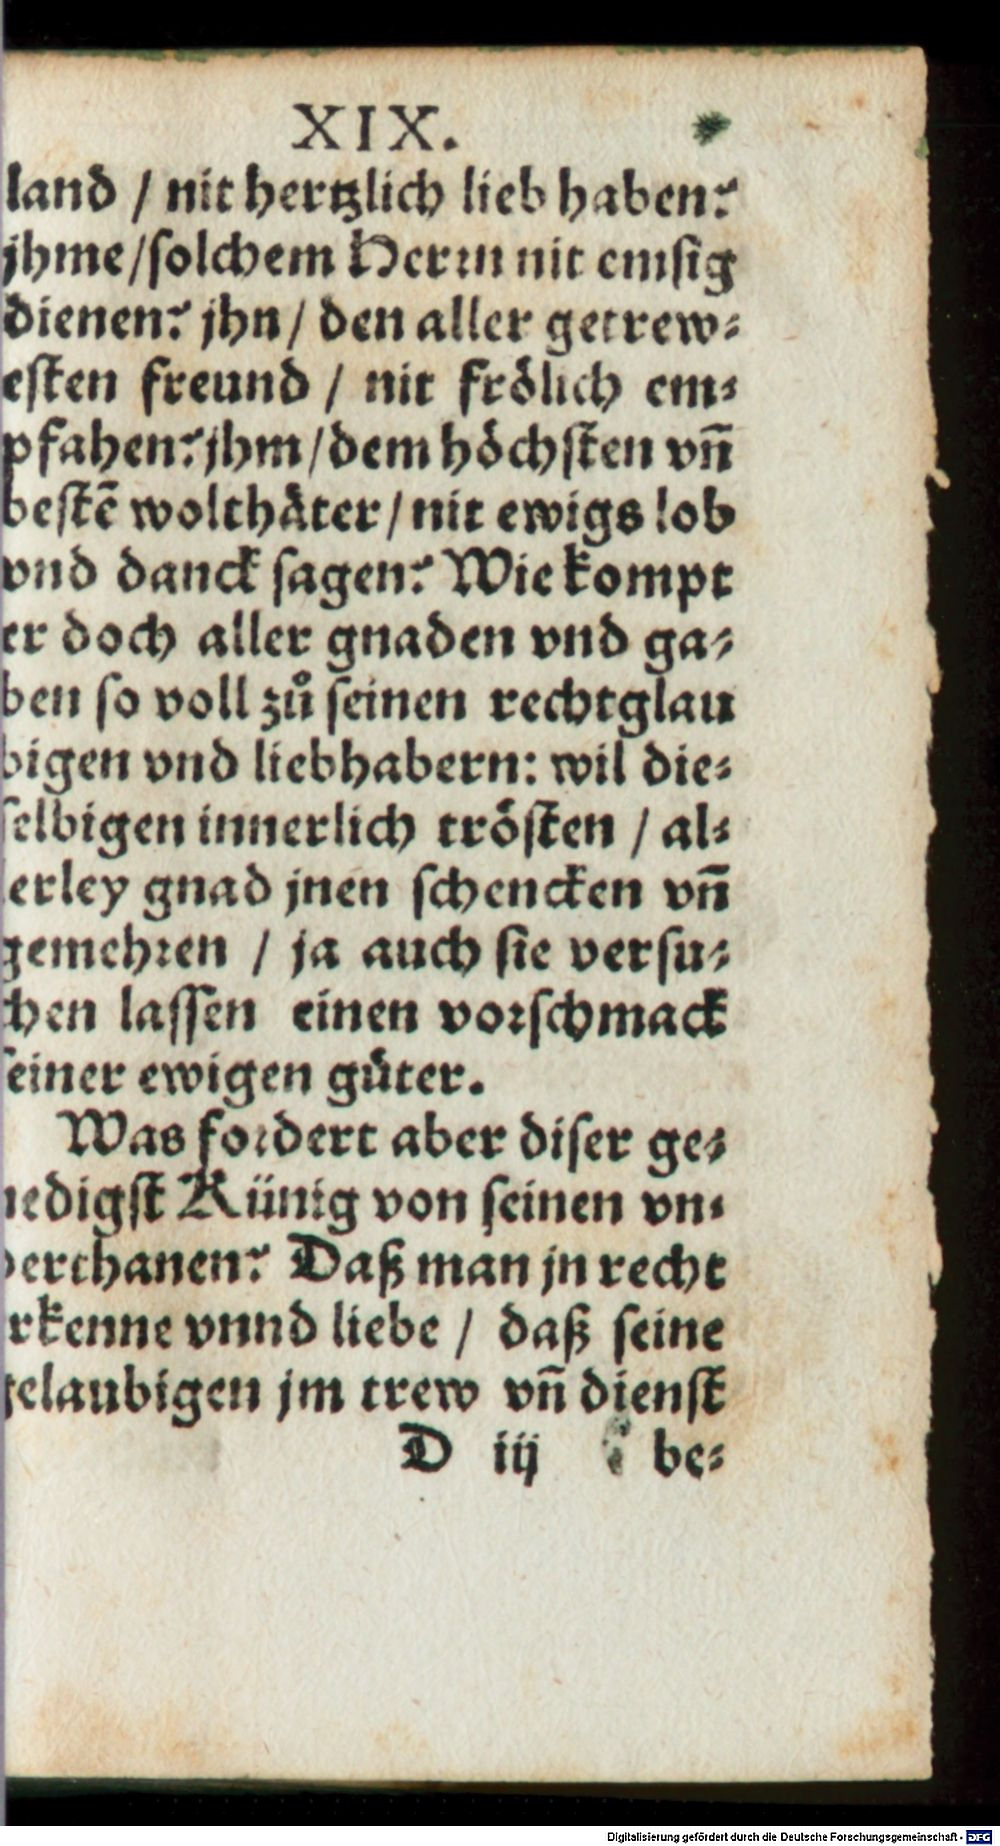 XIX.
land / nit hertzlich lieb haben?
jhme/solchem Herrn nit emsig
dienen? jhn/ den aller getrew⸗
esten freund / nit frölich em⸗
pfahen? jhm/dem höchsten vñ
bestẽ wolthäter/ nit ewigs lob
vnd danck sagen? Wie kompt
er doch aller gnaden vnd ga⸗
ben so voll zů seinen rechtglau
bigen vnd liebhabern: wil die⸗
selbigen innerlich trösten / al⸗
lerley gnad jnen schencken vñ
gemehren / ja auch sie versu⸗
chen lassen einen vorschmack
seiner ewigen güter.
Was fordert aber diser ge⸗
nedigst Künig von seinen vn⸗
derthanen? Daß man jn recht
erkenne vnnd liebe / daß seine
gelaubigen jm trew vñ dienst
D iij be⸗
Digitalisierung gefördert durch die Deutsche Forschungsgemeinschaft - DFG